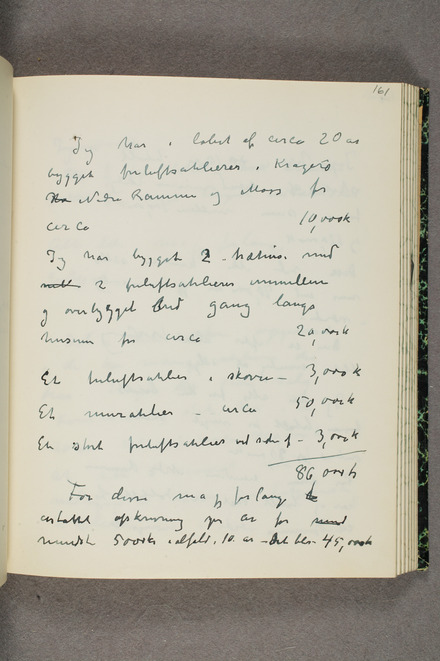 161
Jeg har i løbet af circa 20 aar
bygget friluftsatelierer i Kragerø
Nedre Ramme og Moss for
circa 10,000k
Jeg har bygget 2 med
2 friluftsatelierer imellem
og overbygget bred gang langs
husene for circa 20,000k
Et friluftsatelier i skoven – 3,000k
Et muratelier – circa 50,000k
Et stort friluftsatelier ved – 3,000k
86,000k
For disse maa jeg forlange
afskrivning pr aar for
mindst 5000k i 10 aar – Det blir 45,000k